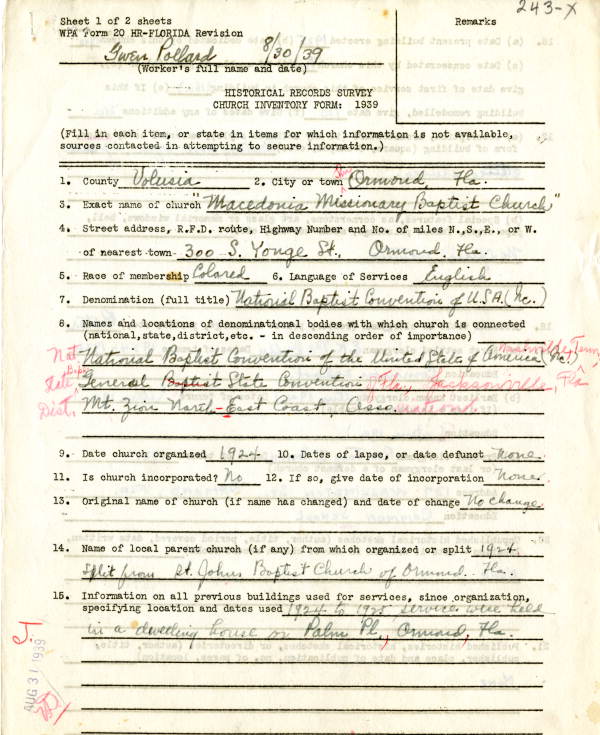 243-X
Sheet 1 of 2 sheets
Remarks
WPA Form 20 HR-FLORIDA Revision
Gwen Pollard 8/30/39
(Worker's full name and date)
HISTORICAL RECORDS SURVEY
CHURCH INVENTORY FORM: 1939
(Fill in each item, or state in items for which information is not available,
sources contacted in attempting to secure information.)
1. County Volusia 2. City or town Ormond, Fla.
3. Exact name of church "Macedonia Missionary Baptist Church"
4. Street address, R.F.D. route, Highway Number and No. of miles N.,S.,E., or W.
of nearest town 300 S. Yonge St., Ormond, Fla.
5. Race of membership Colored 6. Language of Services English
7. Denomination (full title) National Baptist Convention of U.S.A. (Inc.)
8. Names and locations of denominational bodies with which church is connected
(national,state,district,etc. - in descending order of importance) Nashville, Tenn.
Nat. National Baptist Convention of the United State of America (Inc.)
State General Baptist State Convention of Fla, Jacksonville, Fla
Dist. Mt. Zion North-East Coast, Asso.
9. Date church organized 1924 10. Dates of lapse, or date defunct None
11. Is church incorporated? No 12. If so, give date of incorporation None
13. Original name of church (if name has changed) and date of change No change
14. Name of local parent church (if any) from which organized or split 1924
Split from St. Johns Baptist Church of Ormond, Fla.
15. Information on all previous buildings used for services, since organization,
specifying location and dates used 1924 to 1925 services were held
in a dwelling house on Palm Pl., Ormond, Fla.
AUG 31 1939